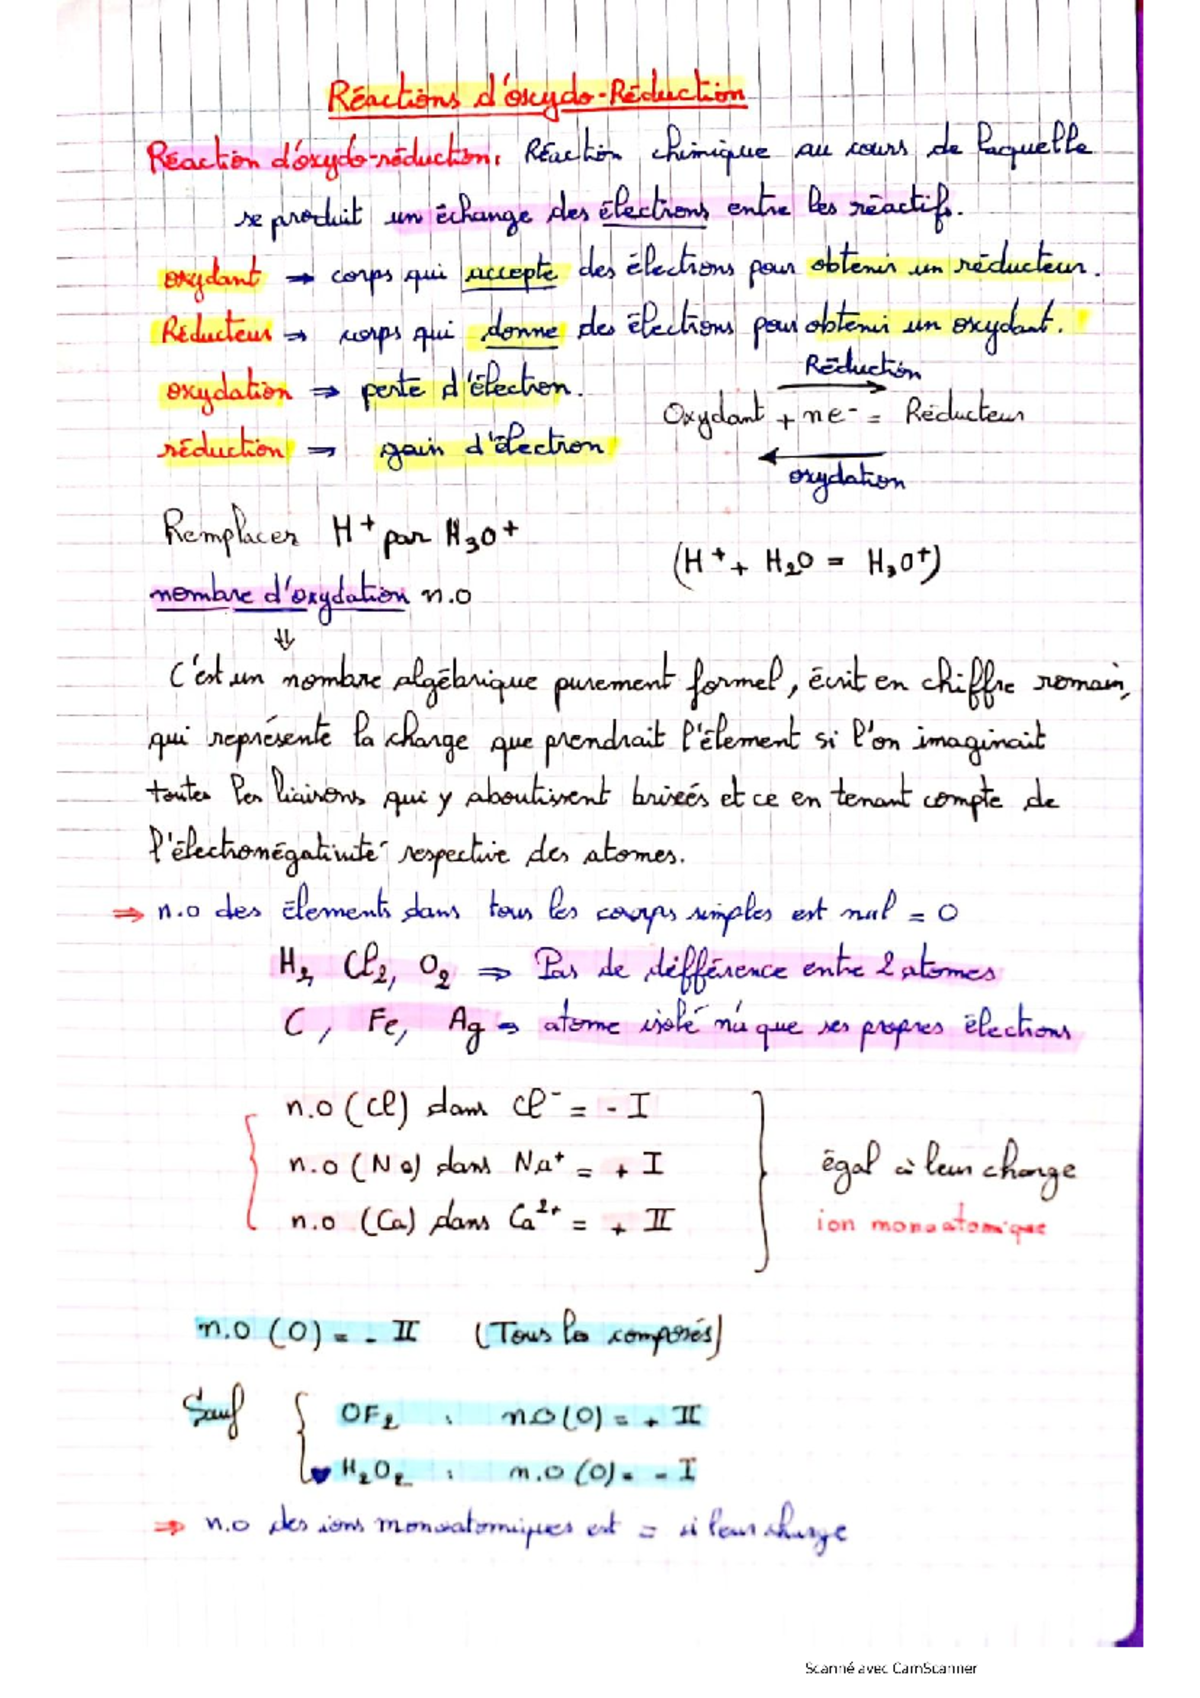 Réactions d'oxydo-Réduction
Réaction d'oxydo-réduction: Réaction chimique au cours de laquelle
se produit un échange des électrons entre les réactifs.
oxydant → corps qui accepte des électrons pour obtenir un réducteur.
Réducteur → corps qui donne des électrons pour obtenir un oxydant.
oxydation ⇒ perte d'électron.
réduction ⇒ gain d'électron
Réduction
Oxydant + ne- = Réducteur
oxydation
Remplacer H+ par H3O+
(H+ + H2O = H3O+)
nombre d'oxydation n.o
⇓
C'est un nombre algébrique purement formel, écrit en chiffre romain,
qui représente la charge que prendrait l'élement si l'on imaginait
toutes les liaisons qui y aboutissent brisées et ce en tenant compte de
l'électronégativité respective des atomes.
⇒ n.o des élements dans tous les corps simples est nul = 0
H2, Cl2, O2 ⇒ Pas de différence entre 2 atomes
C, Fe, Ag → atome isolé n'a que ses propres électrons
n.o (Cl) dans Cl- = - I
n.o (Na) dans Na+ = + I
n.o (Ca) dans Ca2+ = + II
égal à leur charge
ion monoatomique
n.o (O) = - II (Tous les composés)
Sauf
OF2 : n.o (O) = + II
H2O2 : n.o (O) = - I
⇒ n.o des ions monoatomiques est = à leur charge
Scanné avec CamScanner